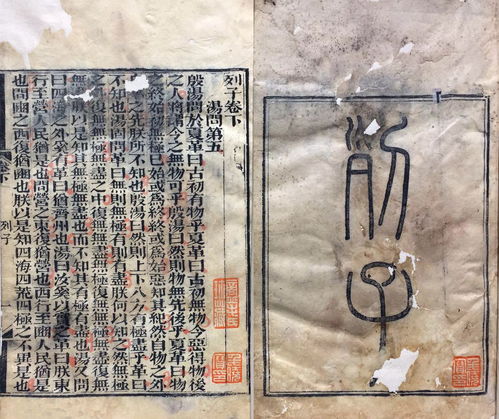 列子
列子卷下
湯問第五
殷湯問於夏革曰古初有物乎夏革曰古初無物今惡得物後
之人將謂今之無物可乎殷湯曰然則物無先後乎夏革曰物
之終始初無極已始或為終終或為始惡知其紀然自物之外
自事之先朕所不知也殷湯曰然則上下八方有極盡乎革曰
不知也湯固問革曰無則無極有則有盡朕何以知之然無極
之外復無無極無盡之中復無無盡無極復無無極無盡復無
無盡朕以是知其無極無盡也而不知其有極有盡也湯又問
曰四海之外奚有革曰猶齊州也湯曰汝奚以實之革曰朕東
行至營人民猶是也問營之東復猶營也西行至豳人民猶是
也問豳之西復猶豳也朕以是知四海四荒四極之不異是也
列子
一